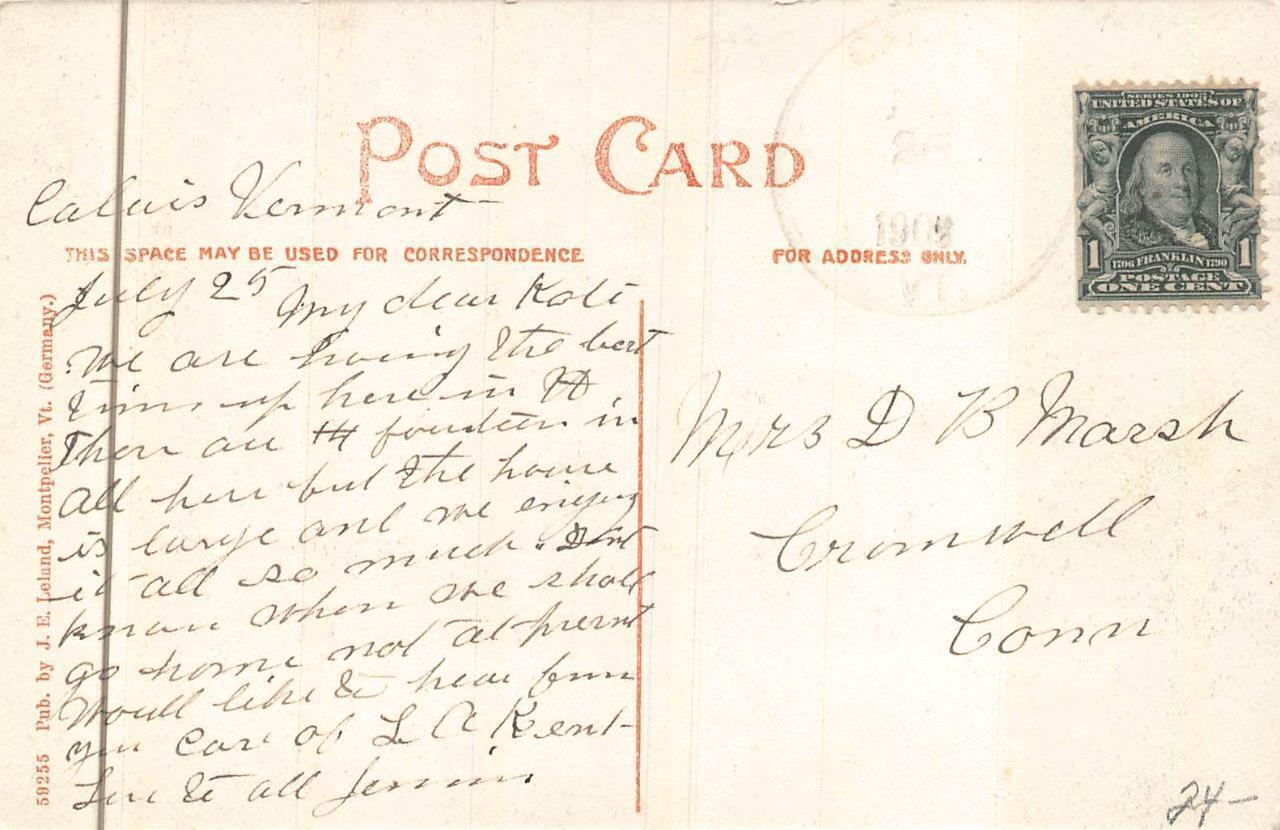 POST CARD
Calais Vermont
THIS SPACE MAY BE USED FOR CORRESPONDENCE
FOR ADDRESS ONLY.
July 25 My dear Kate
We are having the best
time up here in Vt
There are 14 fourteen in
all here but the house
is large and we enjoy
it all so much. Dont
know when we shall
go home not at present
Would like to hear from
you Care of L A Kent
Love to all Jennie
Mrs D B Marsh
Cromwell
Conn
59255 Pub. by J. E. Leland, Montpelier, Vt. (Germany.)
SERIES 1902
UNITED STATES OF
AMERICA
1 1
1706 FRANKLIN 1790
POSTAGE
ONE CENT
190
24-